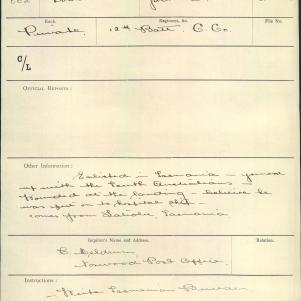 Rank.
Regiment, &c.
File No.
Private
12th Batt. C. Co.
C/L
OFFICIAL REPORTS:
Other Information:
Enlisted in Tasmania - joined
up with the South Australians -
Wounded at the landing - believe he
was put on to hospital ship -
comes from Latrobe, Tasmania
Inquirer's Name and Address.
Relation.
Norwood Post Office.
Instructions:
Tasmanian